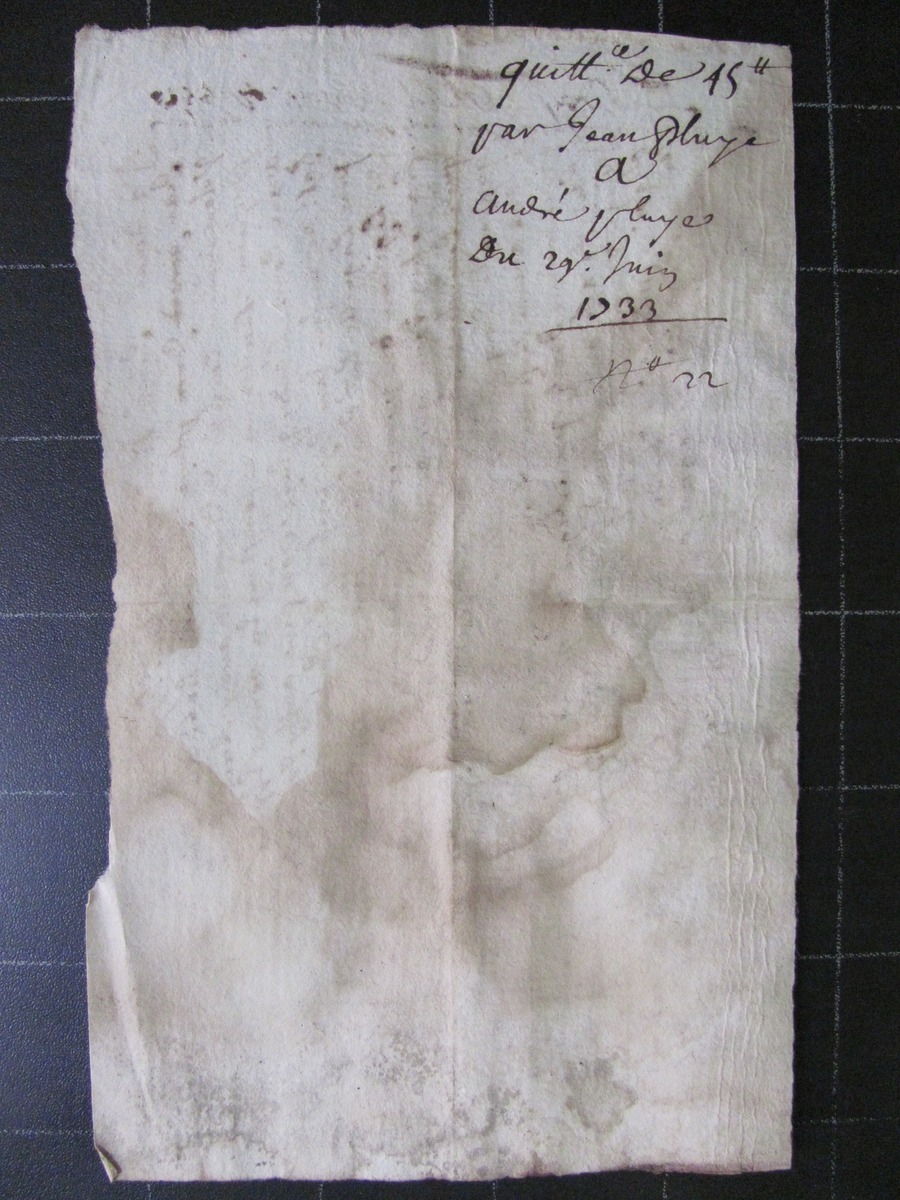 quitt.ce De 45tt
par Jean pluye
a
André pluye
Du 29e. Juin
1733
No 22